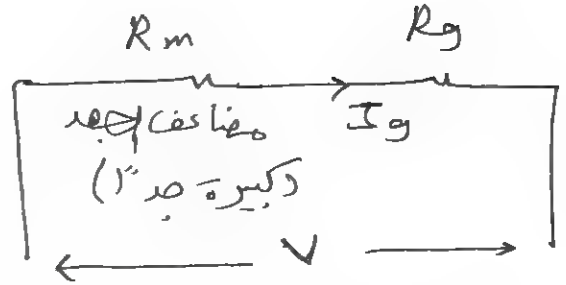 Rm Rg
مضاعف الجهد Ig
(كبيرة جداً)
V